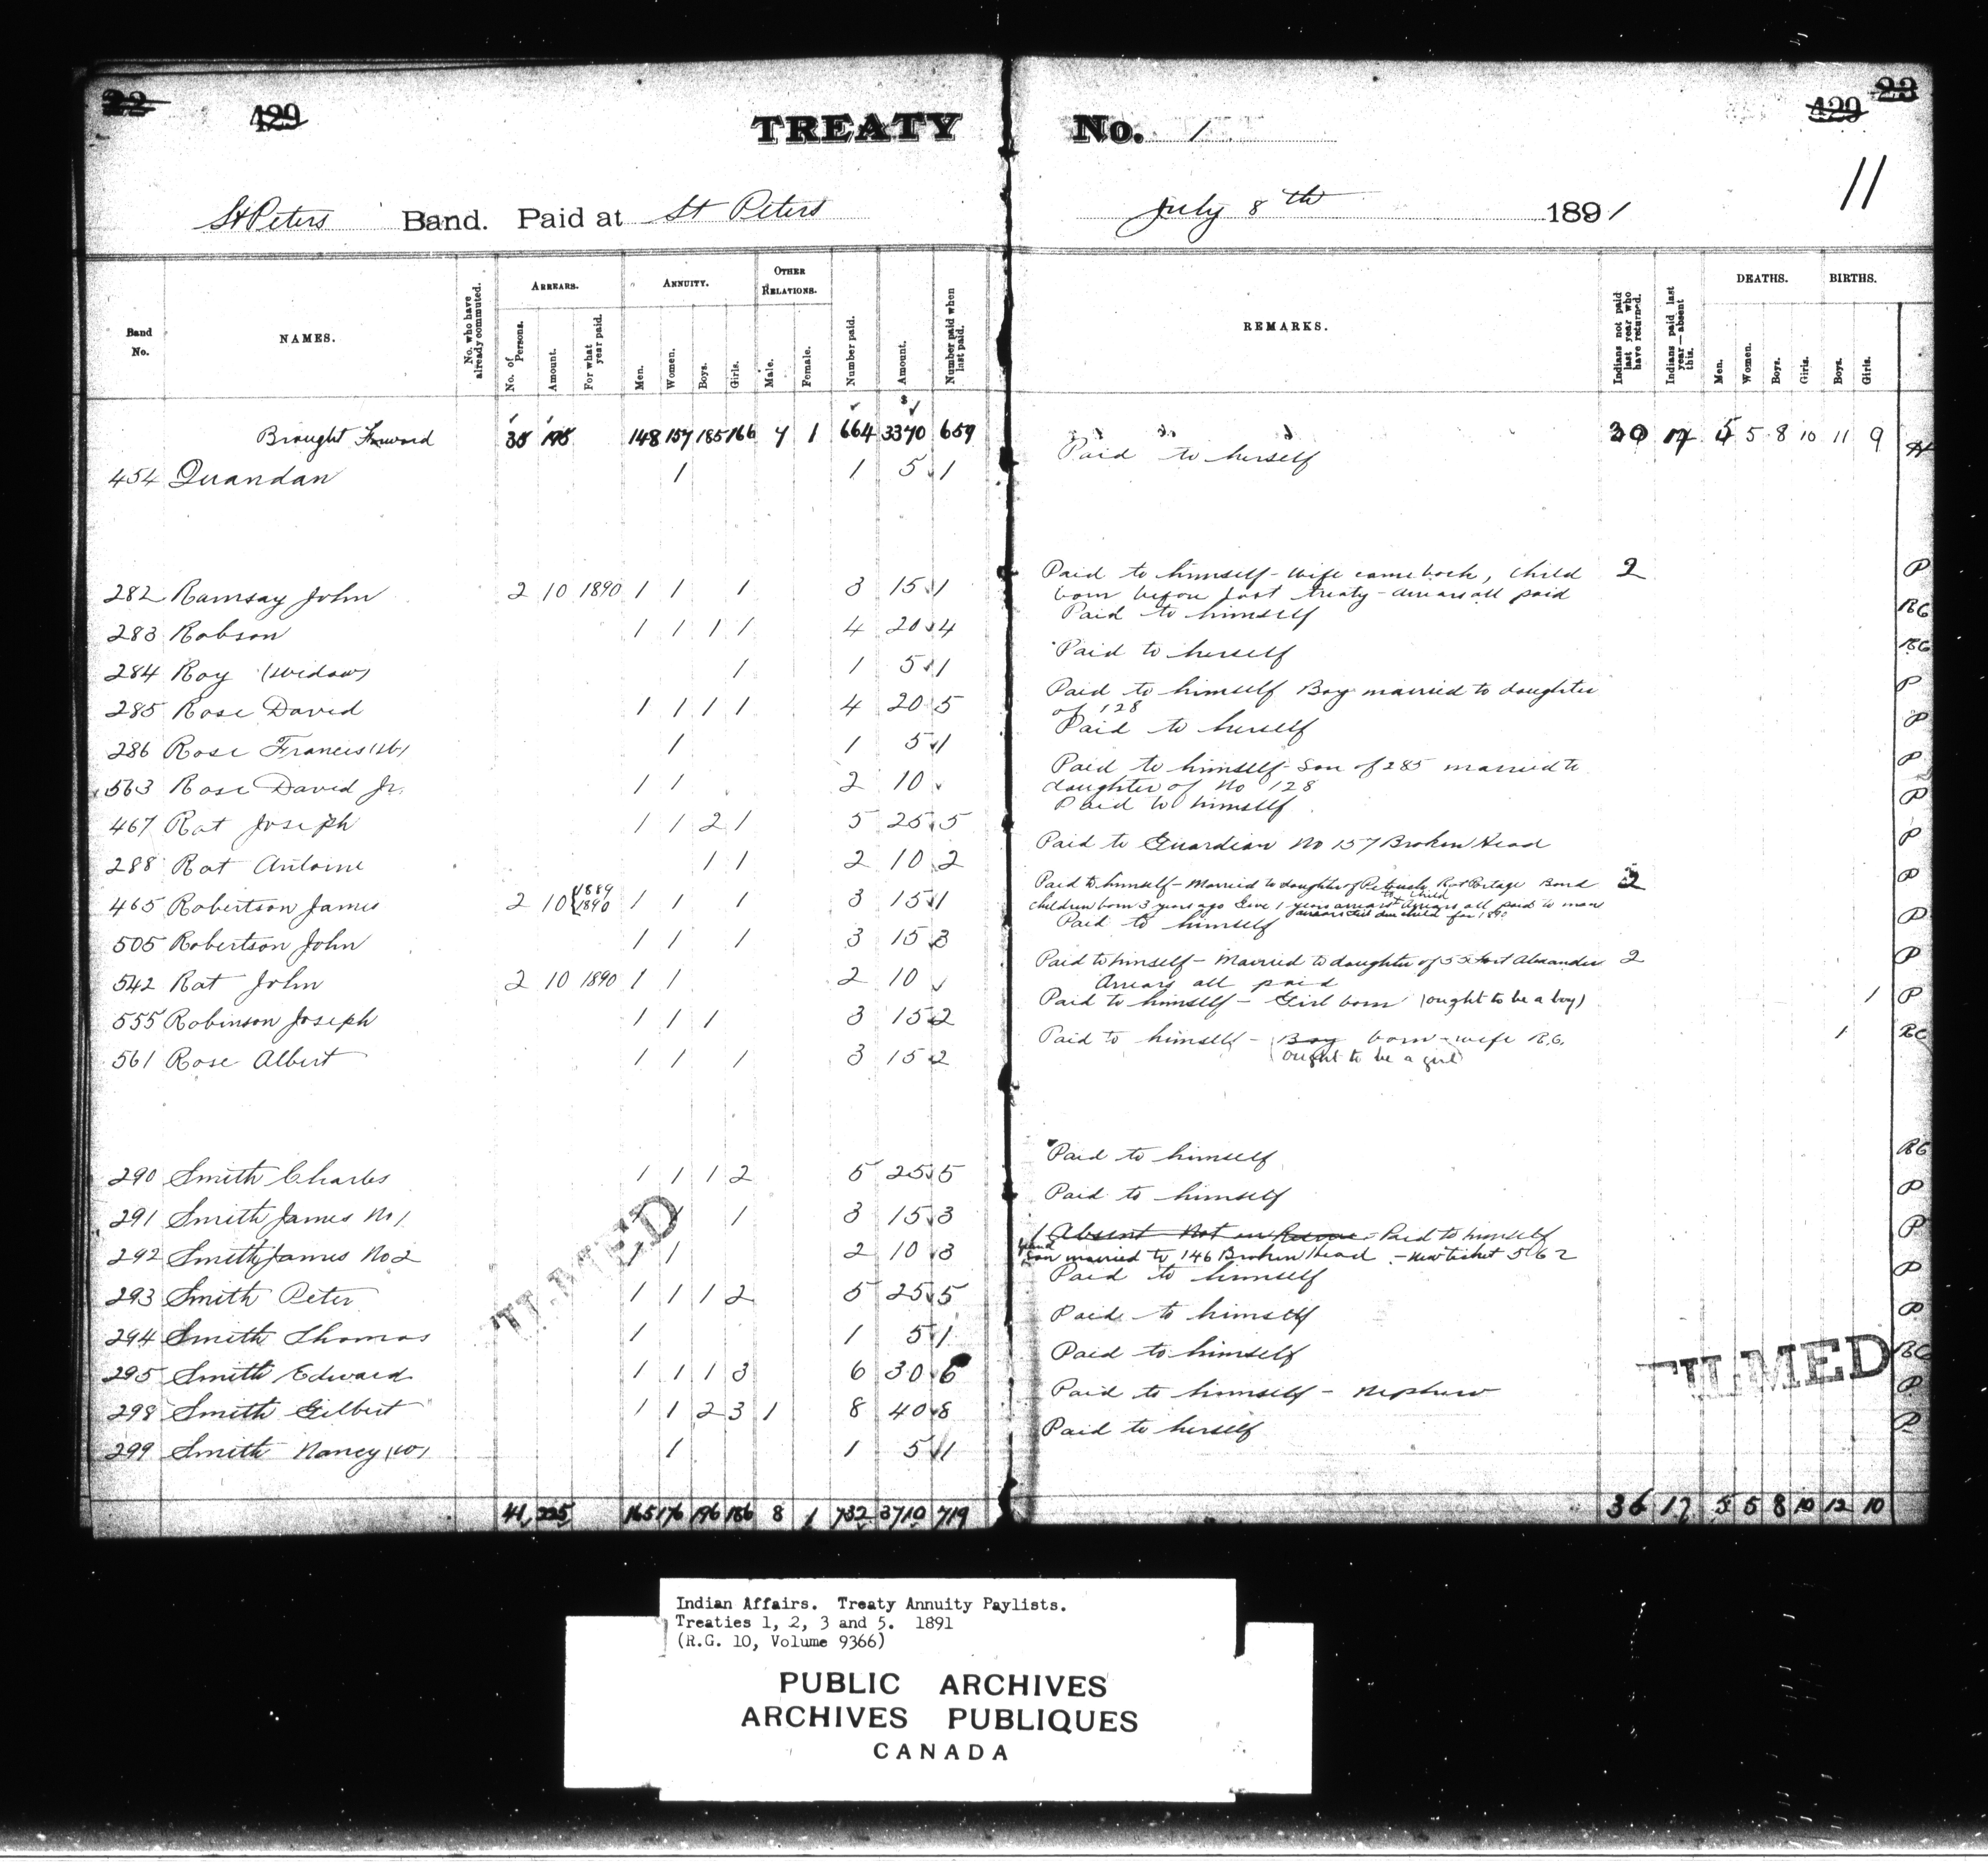 22 429 TREATY No. 1 429 23
11
St Peters Band. Paid at St Peters July 8th 1891
Band No. NAMES. No. who have already commuted. ARREARS. No. of Persons. Amount. For what year paid. ANNUITY. Men. Women. Boys. Girls. OTHER RELATIONS. Male. Female. Number paid. Amount. Number paid when last paid. REMARKS. Indians not paid last year who have returned. Indians paid last year—absent this. DEATHS. Men. Women. Boys. Girls. BIRTHS. Boys. Girls.
Brought Forward 35 195 148 157 185 166 7 1 664 3370 659 30 17 5 5 8 10 11 9
454 Quandan 1 1 5 1 Paid to herself
282 Ramsay John 2 10 1890 1 1 1 3 15 1 Paid to himself - Wife came back, child 2 P
born before last treaty - arrears all paid
283 Robson 1 1 1 1 4 20 4 Paid to himself RC
284 Roy (widow) 1 1 5 1 Paid to herself RC
285 Rose David 1 1 1 1 4 20 5 Paid to himself Boy married to daughter P
of 128
286 Rose Frances (W) 1 1 5 1 Paid to herself P
563 Rose David Jr. 1 1 2 10 Paid to himself - Son of 285 married to P
daughter of No 128
467 Rat Joseph 1 1 2 1 5 25 5 Paid to himself P
288 Rat Antoine 1 1 2 10 2 Paid to Guardian No 157 Broken Head P
465 Robertson James 2 10 1889 1890 1 1 1 3 15 1 Paid to himself - Married to daughter of Rat Portage Band 2 P
children born 3 years ago Give 1 years arrears Arrears all paid to man
505 Robertson John 1 1 1 3 15 3 Paid to himself P
542 Rat John 2 10 1890 1 1 2 10 Paid to himself - Married to daughter of 52 Fort Alexander 2 P
Arrears all paid
555 Robinson Joseph 1 1 1 3 15 2 Paid to himself - Girl born (ought to be a boy) 1 P
561 Rose Albert 1 1 1 3 15 2 Paid to himself - Boy born - wife R.C. 1 RC
(ought to be a girl)
290 Smith Charles 1 1 1 2 5 25 5 Paid to himself RC
291 Smith James No 1 1 1 1 3 15 3 Paid to himself P
292 Smith James No 2 1 1 2 10 3 1 Absent Not on Reserve - Paid to himself P
son married to 146 Broken Head - New ticket 562
293 Smith Peter 1 1 1 2 5 25 5 Paid to himself P
294 Smith Thomas 1 1 5 1 Paid to himself P
295 Smith Edward 1 1 1 3 6 30 6 Paid to himself RC
298 Smith Gilbert 1 1 2 3 1 8 40 8 Paid to himself - Nephew P
299 Smith Nancy (W) 1 1 5 1 Paid to herself P
FILMED
FILMED
41 225 165 176 196 186 8 1 732 3710 719 36 17 5 5 8 10 12 10
Indian Affairs. Treaty Annuity Paylists.
Treaties 1, 2, 3 and 5. 1891
(R.G. 10, Volume 9366)
PUBLIC ARCHIVES
ARCHIVES PUBLIQUES
CANADA